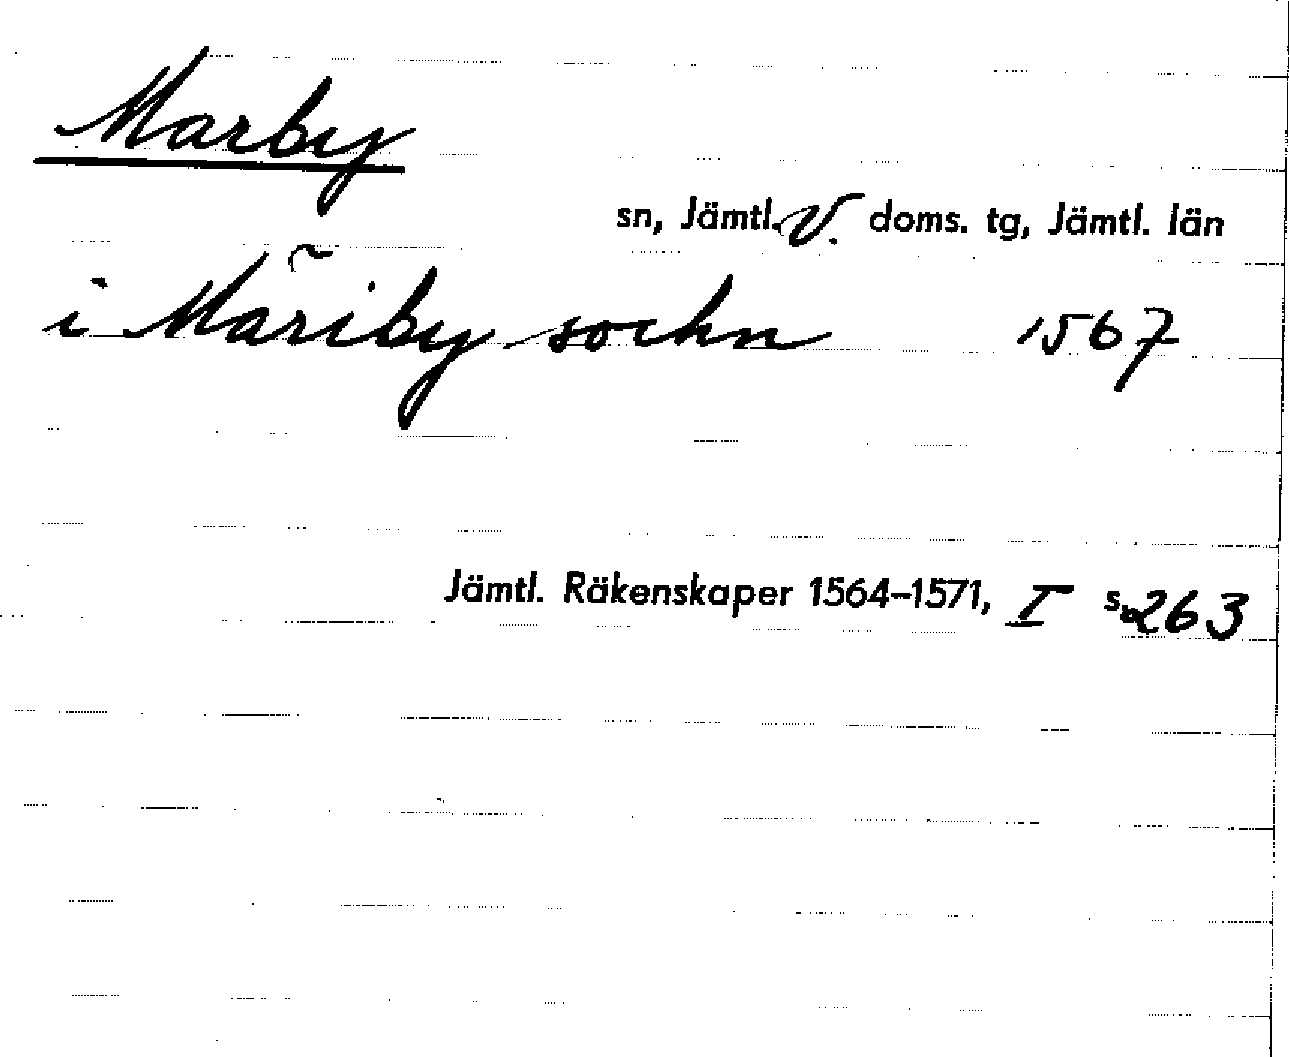 Marby
sn, Jämtl. V. doms. tg, Jämtl. län
i Mar̃iby sochn 1567
Jämtl. Räkenskaper 1564–1571, I s. 263